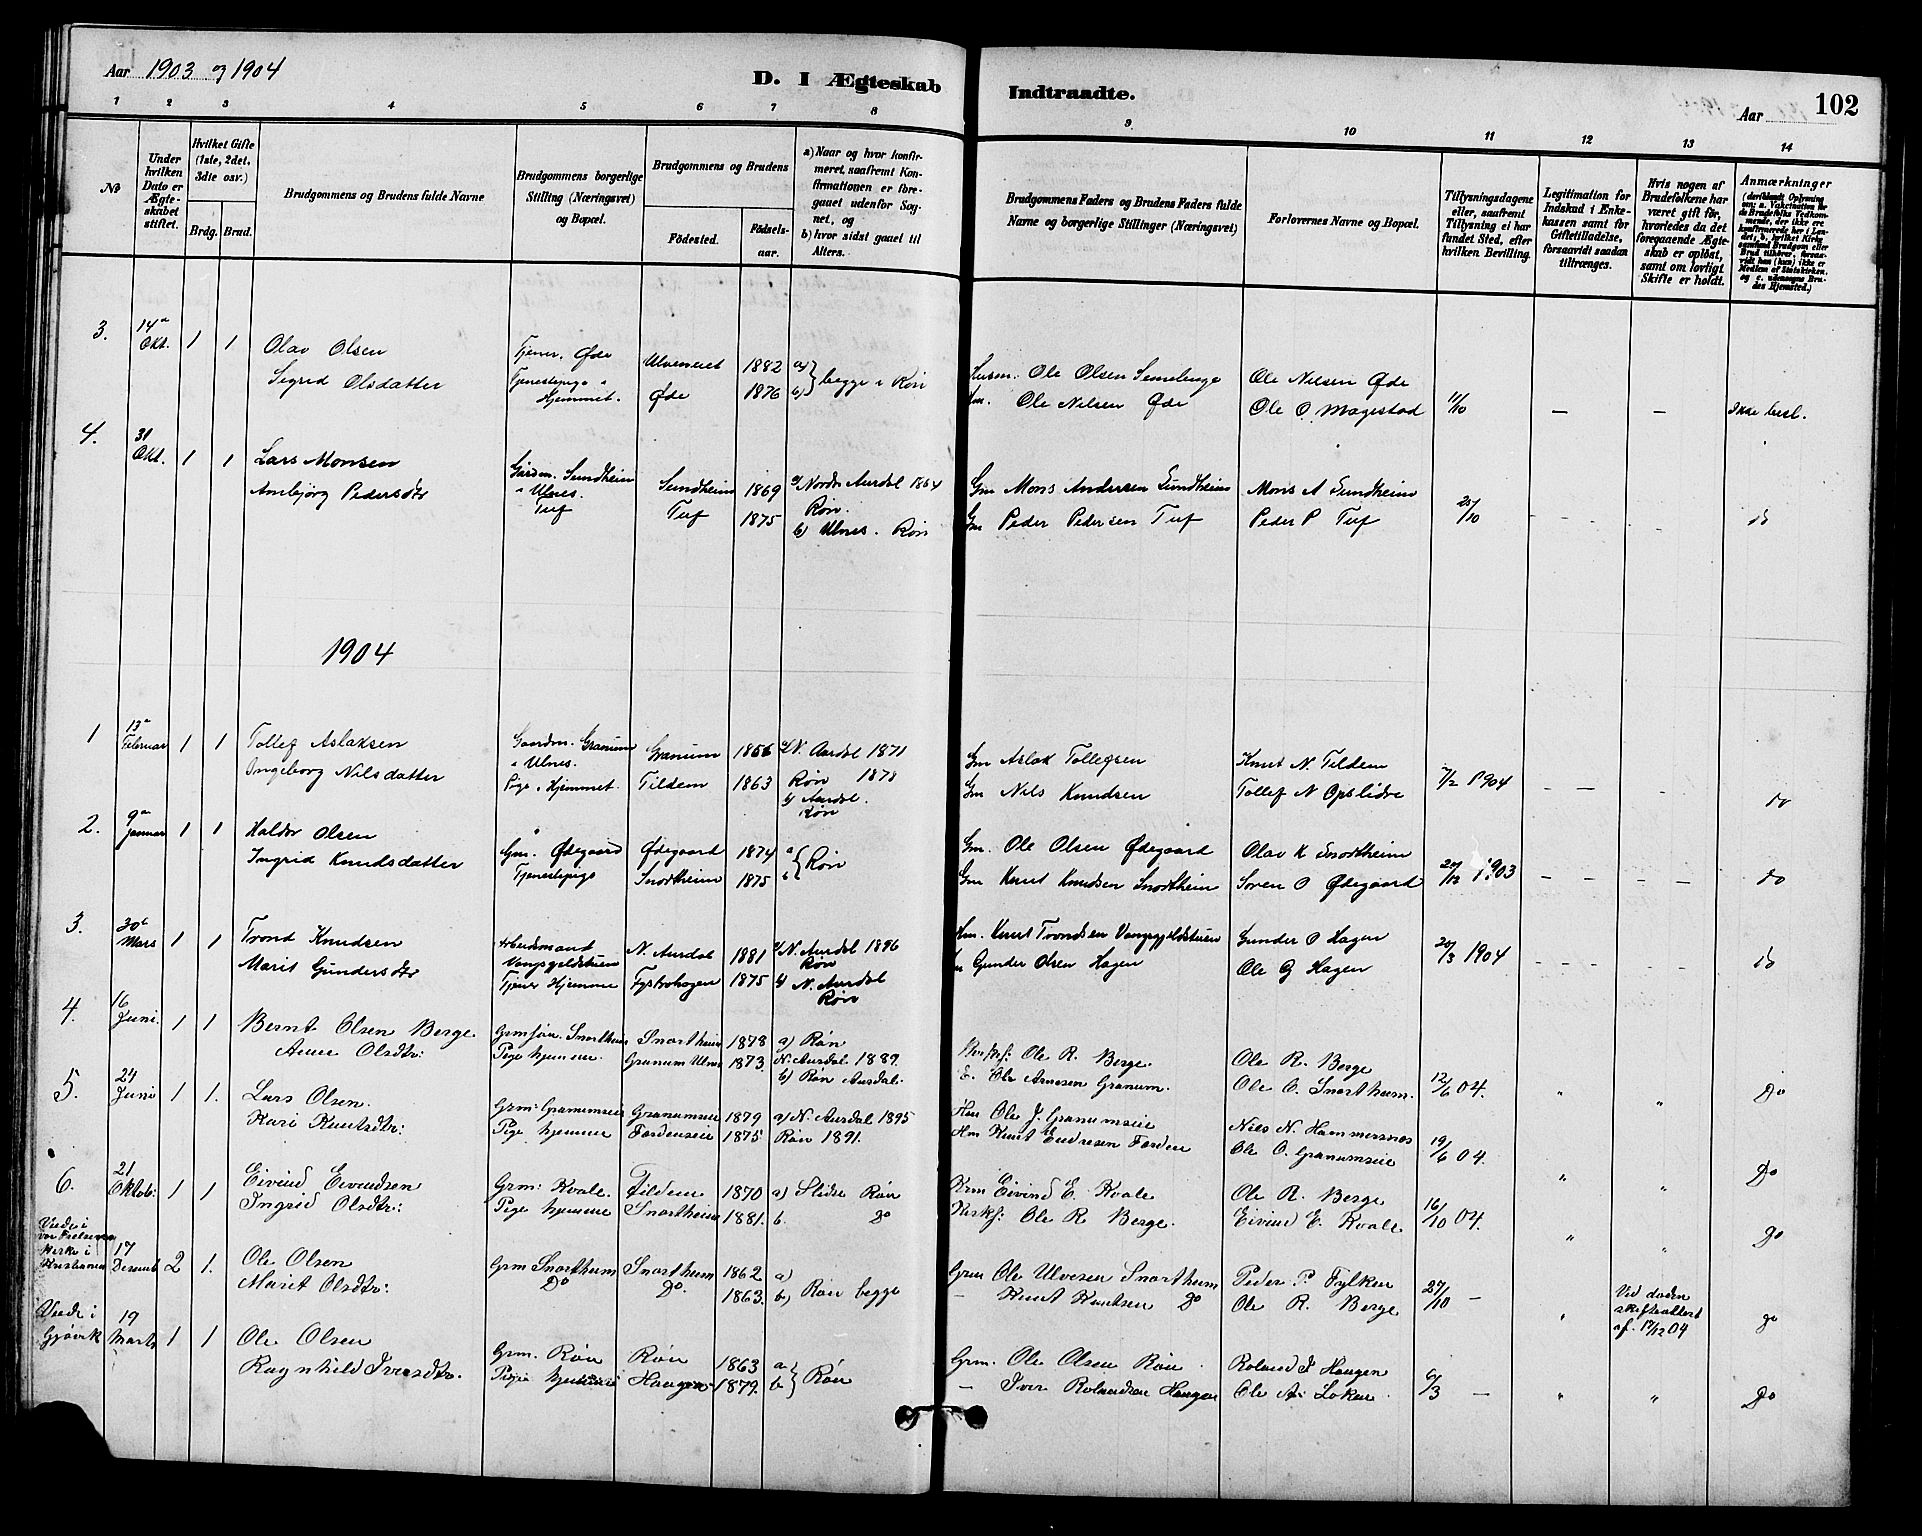 Aar 1903 og 1904
D. I Ægteskab Indtraadte.
Aar 102
1 2 3 4 5 6 7 8 9 10 11 12 13 14
No
Under hvilken Dato er Ægteskabet stiftet.
Hvilket Gifte (1ste, 2det, 3die osv.)
Brdg. Brud.
Brudgommens og Brudens fulde Navne
Brudgommens borgerlige Stilling (Næringsvei) og Bopæl.
Brudgommens og Brudens
Fødested. Fødselsaar.
a) Naar og hvor konfirmeret, saafremt Konfirmationen er foregaaet udenfor Sognet, og
b) hvor sidst gaaet til Alters.
Brudgommens Faders og Brudens Faders fulde Navne og borgerlige Stillinger (Næringsvei)
Forlovernes Navne og Bopæl.
Tillysningsdagene eller, saafremt Tillysning ei har fundet Sted, efter hvilken Bevilling.
Legitimation for Indskud i Enkekassen samt for Giftetilladelse, forsaavidt saadan tiltrænges.
Hvis nogen af Brudefolkene har været gift før, hvorledes da det foregaaende Ægteskab er opløst, samt om lovligt Skifte er holdt.
Anmærkninger
3. 14a Okt. 1 1 Olav Olsen Tjener, Øde Ulveneiet 1882 a) begge i Røn Husm. Ole Olsen Semelenge Ole Nilsen Øde
Sigrid Olsdatter Tjenestepige i Hjemmet. Øde 1876 b) Ole Nilsen Øde Ole O. Magestad 11/10 — — Ikke besl.
4. 31 Okt. 1 1 Lars Monsen Gårdm. Sundheim i Ulnes. Sundheim 1869 a) Nordre Aurdal 1884 Røn. Gm Mons Andersen Sundheim Mons A Sundheim
Ambjørg Pedersdtr Tuf Tuf 1875 b) Ulnes. Røn Gm Peder Pedersen Tuf Peder P Tuf 25/10 do
1904
1 13a Februar 1 1 Tollef Aslaksen Gaardm. Granum i Ulnes. Granum 1856 a) N. Aurdal 1871 Gm Aslak Tollefsen Knut N. Tildem
Ingeborg Nilsdatter Pige i Hjemmet. Tildem 1863 Røn 1878 b) Aurdal. Røn Gm Nils Knudsen Tollef N Opslidre 7/2 1904 do
2. 9a Januar 1 1 Haldor Olsen Gm. Ødegaard Ødegaard 1874 a Røn Gm. Ole Olsen Ødegaard Olav K Snortheim
Ingrid Knudsdatter Tjenestepige Snortheim 1875 b Gm Knut Knudsen Snortheim Søren O Ødegaard 20/12 1903 do
3. 30b Mars 1 1 Trond Knudsen Arbeidsmand Vangsgjeldstuen N. Aurdal 1881 a) N. Aurdal 1896 Røn Hm. Knut Trondsen Vangsgjeldstuen Gunder O Hagen
Marit Gundersdtr Tjener Hjemme Fystrohagen 1875 b) N. Aurdal Røn Gunder Olsen Hagen Ole G Hagen 20/3 1904 do
4. 16 Juni. 1 1 Bernt Olsen Berge Snortheim Snortheim 1878 a) Røn Kirkesf: Ole R. Berge. Ole R. Berge
Anne Olsdtr: Pige hjemme. Granum Ulnes 1873. N. Aurdal 1889. b) Røn Aurdal. Ole Arnesen Granum. Ole O. Snortheim. 12/6 04. " " Do
5. 24 Juni 1 1. Lars Olsen. Grm: Granumseie Granumseie 1879 a) N. Aurdal 1895 Hm Ole J. Granumseie Nils N. Hammersnes
Kari Knutsdtr: Pige hjemme Fordenseie 1875 Røn 1891. Hm Knut Endresen Forden Ole O. Granumseie 19/6 04. " " Do
6. 21 Oktob: 1 1 Eivind Eivindsen Grm: Kvale. Tildem 1870 a) Slidre Røn Grm Eivind E. Kvale Ole R. Berge
Ingrid Olsdtr: Pige hjemme Snortheim 1881. b. Do Kirksf: Ole R. Berge. Eivind E. Kvale 16/10 04. " " Do
Viede i vor Frelsers Kirke i Kristiania 17 Desemb 2 1. Ole Olsen Grm Snortheim Snortheim 1862 a) Røn begge Grm Ole Ulvesen Snortheim Peder P. Fylken
Marit Olsdtr: Do Do. 1863. b) — Knut Knutsen Do Ole R. Berge 27/10 — " Ved døden skifteattest af 17/12 04 Do
Viede i Gjøvik 19 Marts 1 1 Ole Olsen Grm. Røn Røn 1863 a Røn Grm. Ole Olsen Røn Roland I. Haugen
Ragnhild Iversdtr. Pige hjemme Haugen 1879. b — Iver Rolandsen Haugen Ole A. Løken 6/3 — " " Do